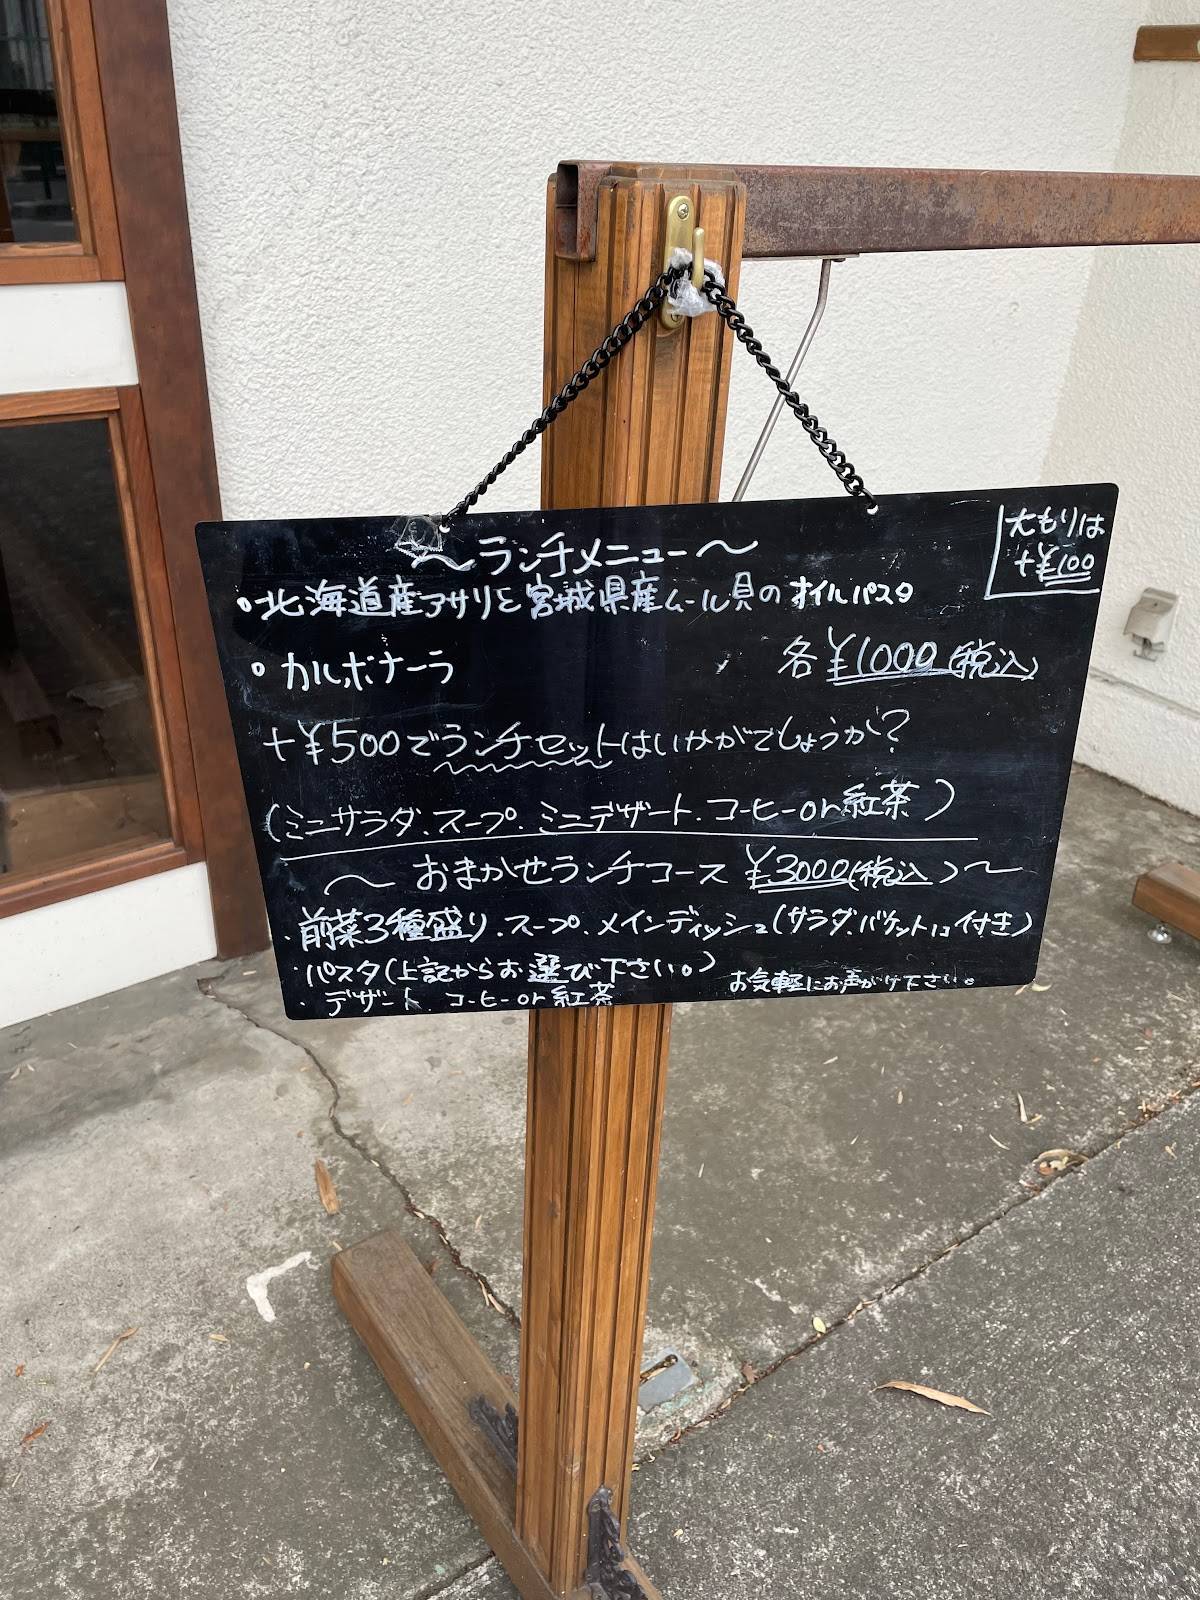 〜ランチメニュー〜
大もりは
+¥100
・北海道産アサリと宮城県産ムール貝のオイルパスタ
・カルボナーラ
各¥1000(税込)
+¥500でランチセットはいかがでしょうか?
(ミニサラダ.スープ.ミニデザート.コーヒーor紅茶)
〜おまかせランチコース ¥3000(税込)〜
・前菜3種盛り.スープ.メインディッシュ(サラダ.バケット付き)
・パスタ(上記からお選び下さい。)
・デザート コーヒーor紅茶
お気軽にお声がけ下さい。